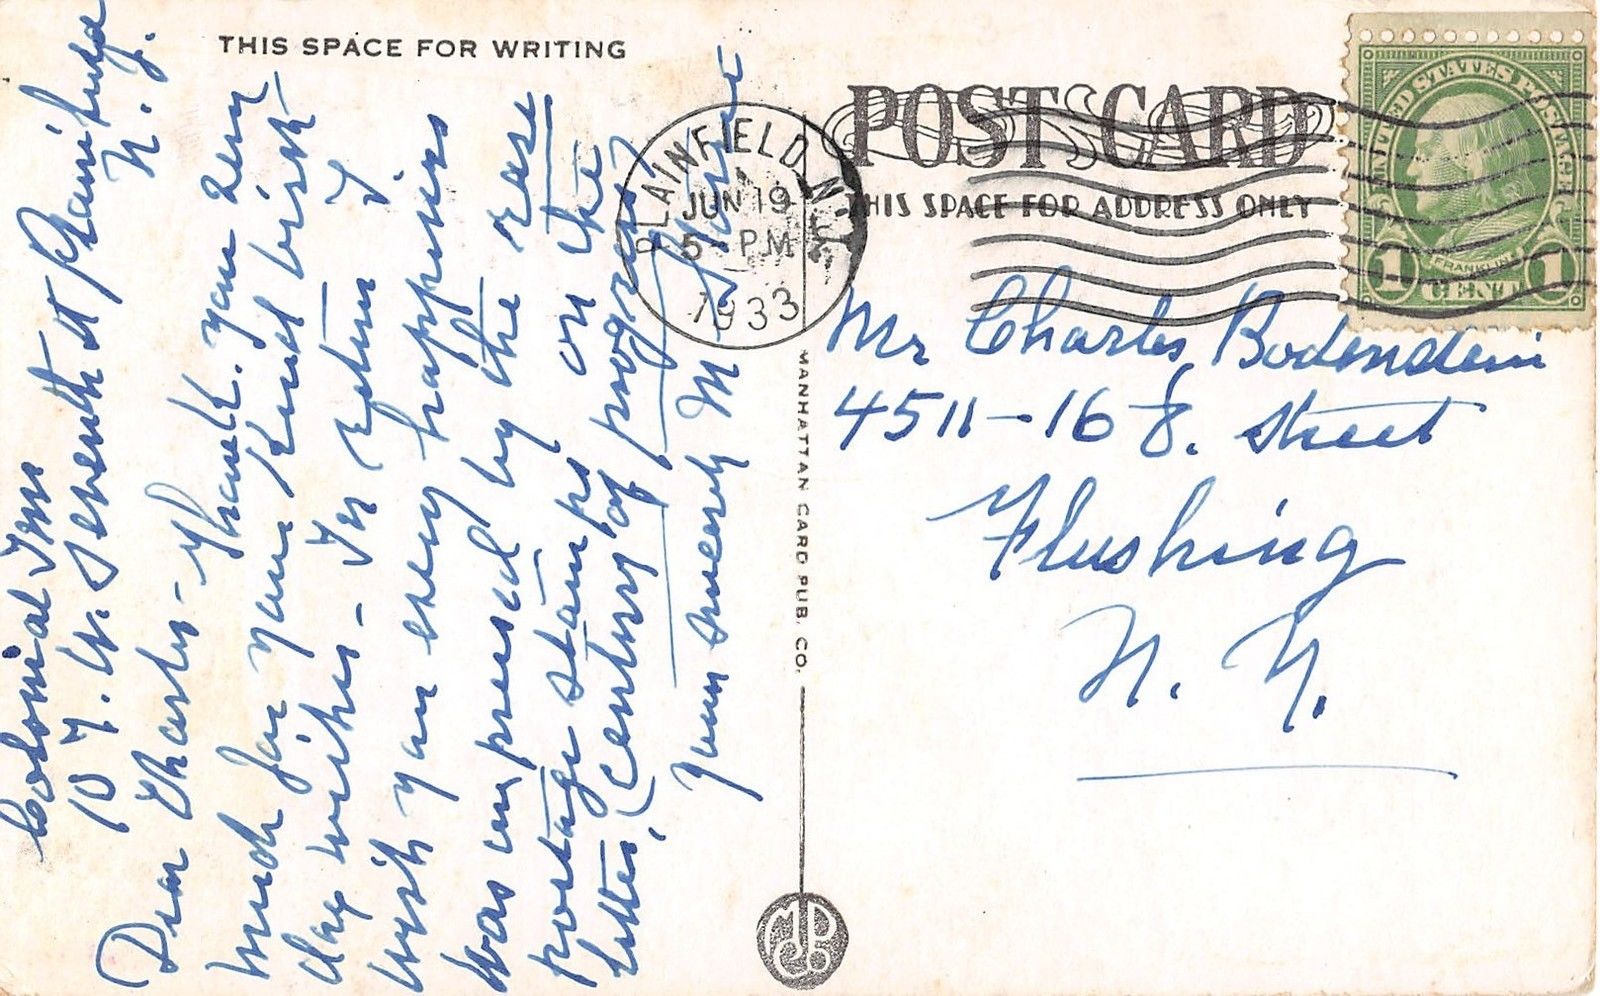 THIS SPACE FOR WRITING
Colonial Inn
107 W. Seventh St Plainfield
N. J.
Dear Charles - Thank you very
much for your kind birth-
day wishes - In return I
wish you every happiness
Was impressed by the rare
postage stamps on the
letter, (Century of progress)
Yours sincerely M
PLAINFIELD N.J.
JUN 19
5 PM
1933
POST CARD
THIS SPACE FOR ADDRESS ONLY
UNITED STATES POSTAGE
FRANKLIN
1 CENT 1
Mr Charles Bodenstein
4511-168. Street
Flushing
N. Y.
MANHATTAN CARD PUB. CO.